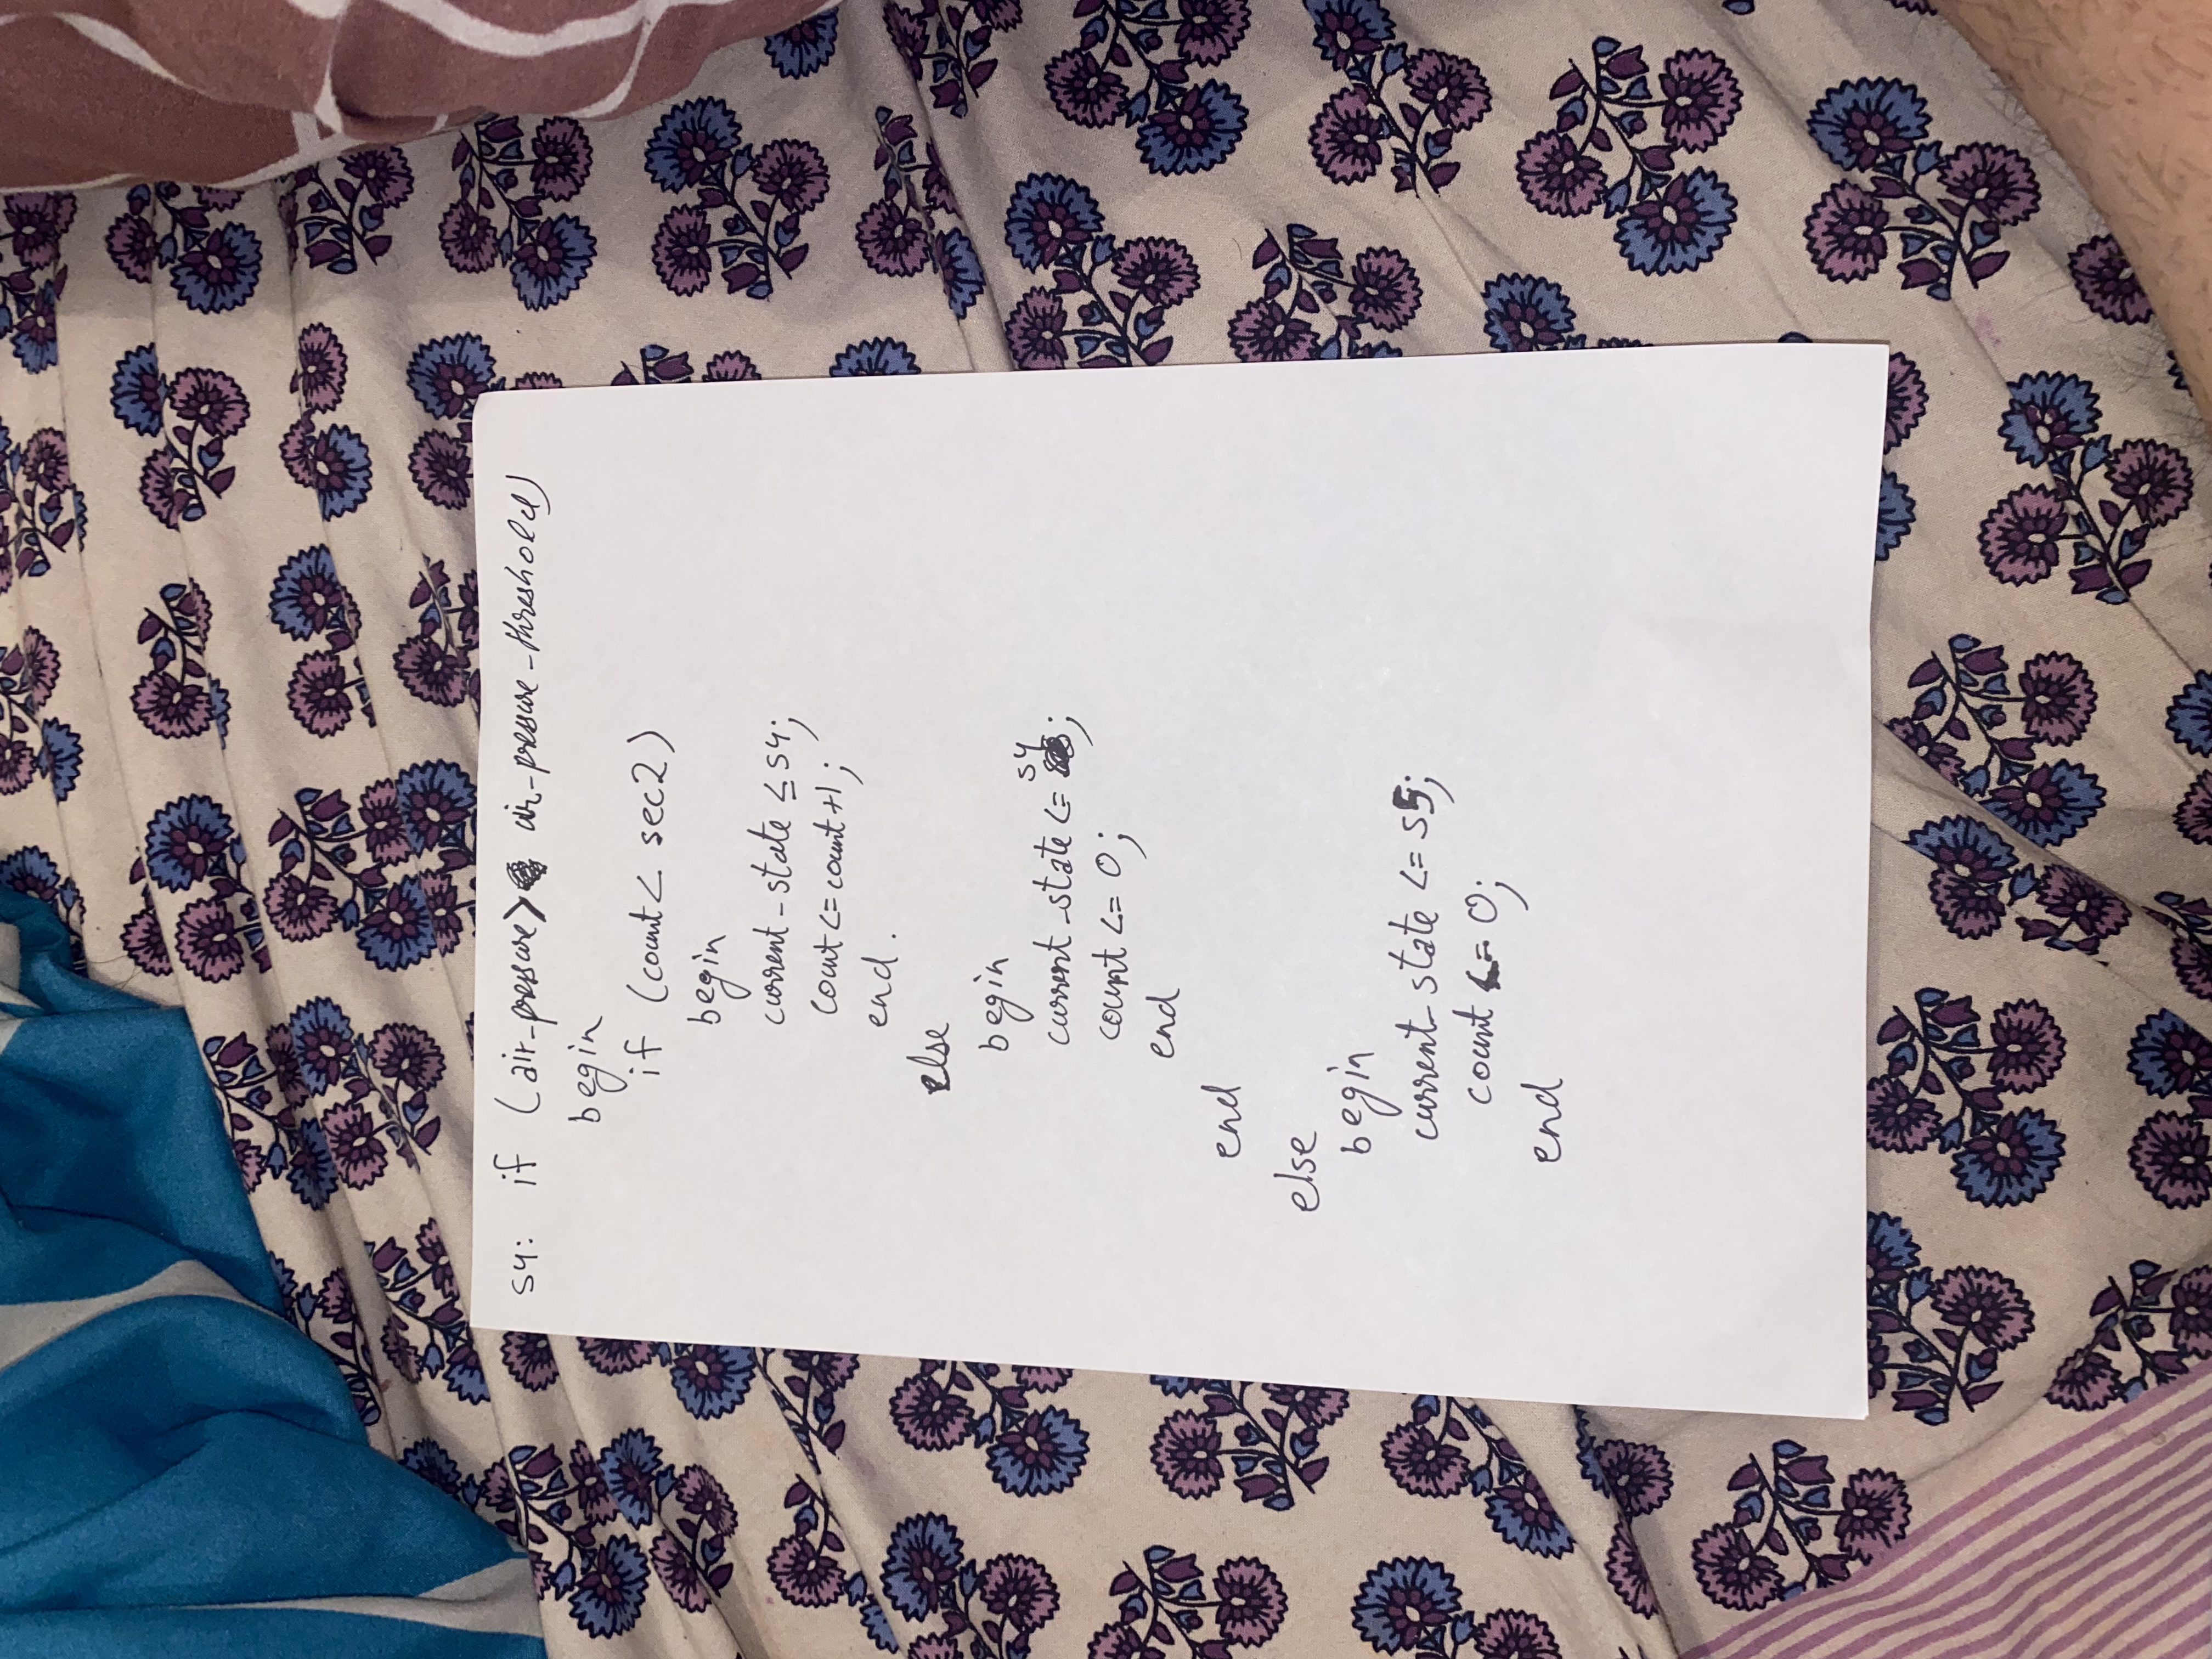 S4: if (air_pressure> air_pressure_threshold)
begin
if (count < sec2)
begin
current_state <= S4;
count <= count+1;
end.
else
begin
current_state <= S4;
count <= 0;
end
end
else
begin
current_state <= S5;
count <= 0;
end